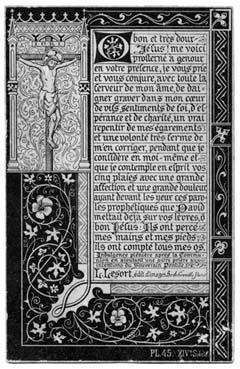 O bon et très doux
Jésus! me voici
prosterné à genoux
en votre présence, je vous prie
et vous conjure, avec toute la
ferveur de mon âme, de dai-
gner graver dans mon cœur
de vifs sentiments de foi, d'es-
pérance et de charité, un vrai
repentir de mes égarements
et une volonté très ferme de
m'en corriger, pendant que je
considère en moi-même et
que je contemple en esprit vos
cinq plaies avec une grande
affection et une grande douleur
ayant devant les yeux ces paro-
les prophétiques que David
mettait déjà sur vos lèvres, ô
bon Jésus: Ils ont percé
mes mains et mes pieds;
Ils ont compté tous mes os.
Indulgence plénière après la Commu-
nion en ajoutant une autre prière aux
intentions du Souverain Pontife
L. Lesort
PL. 45. XIVe Siècle